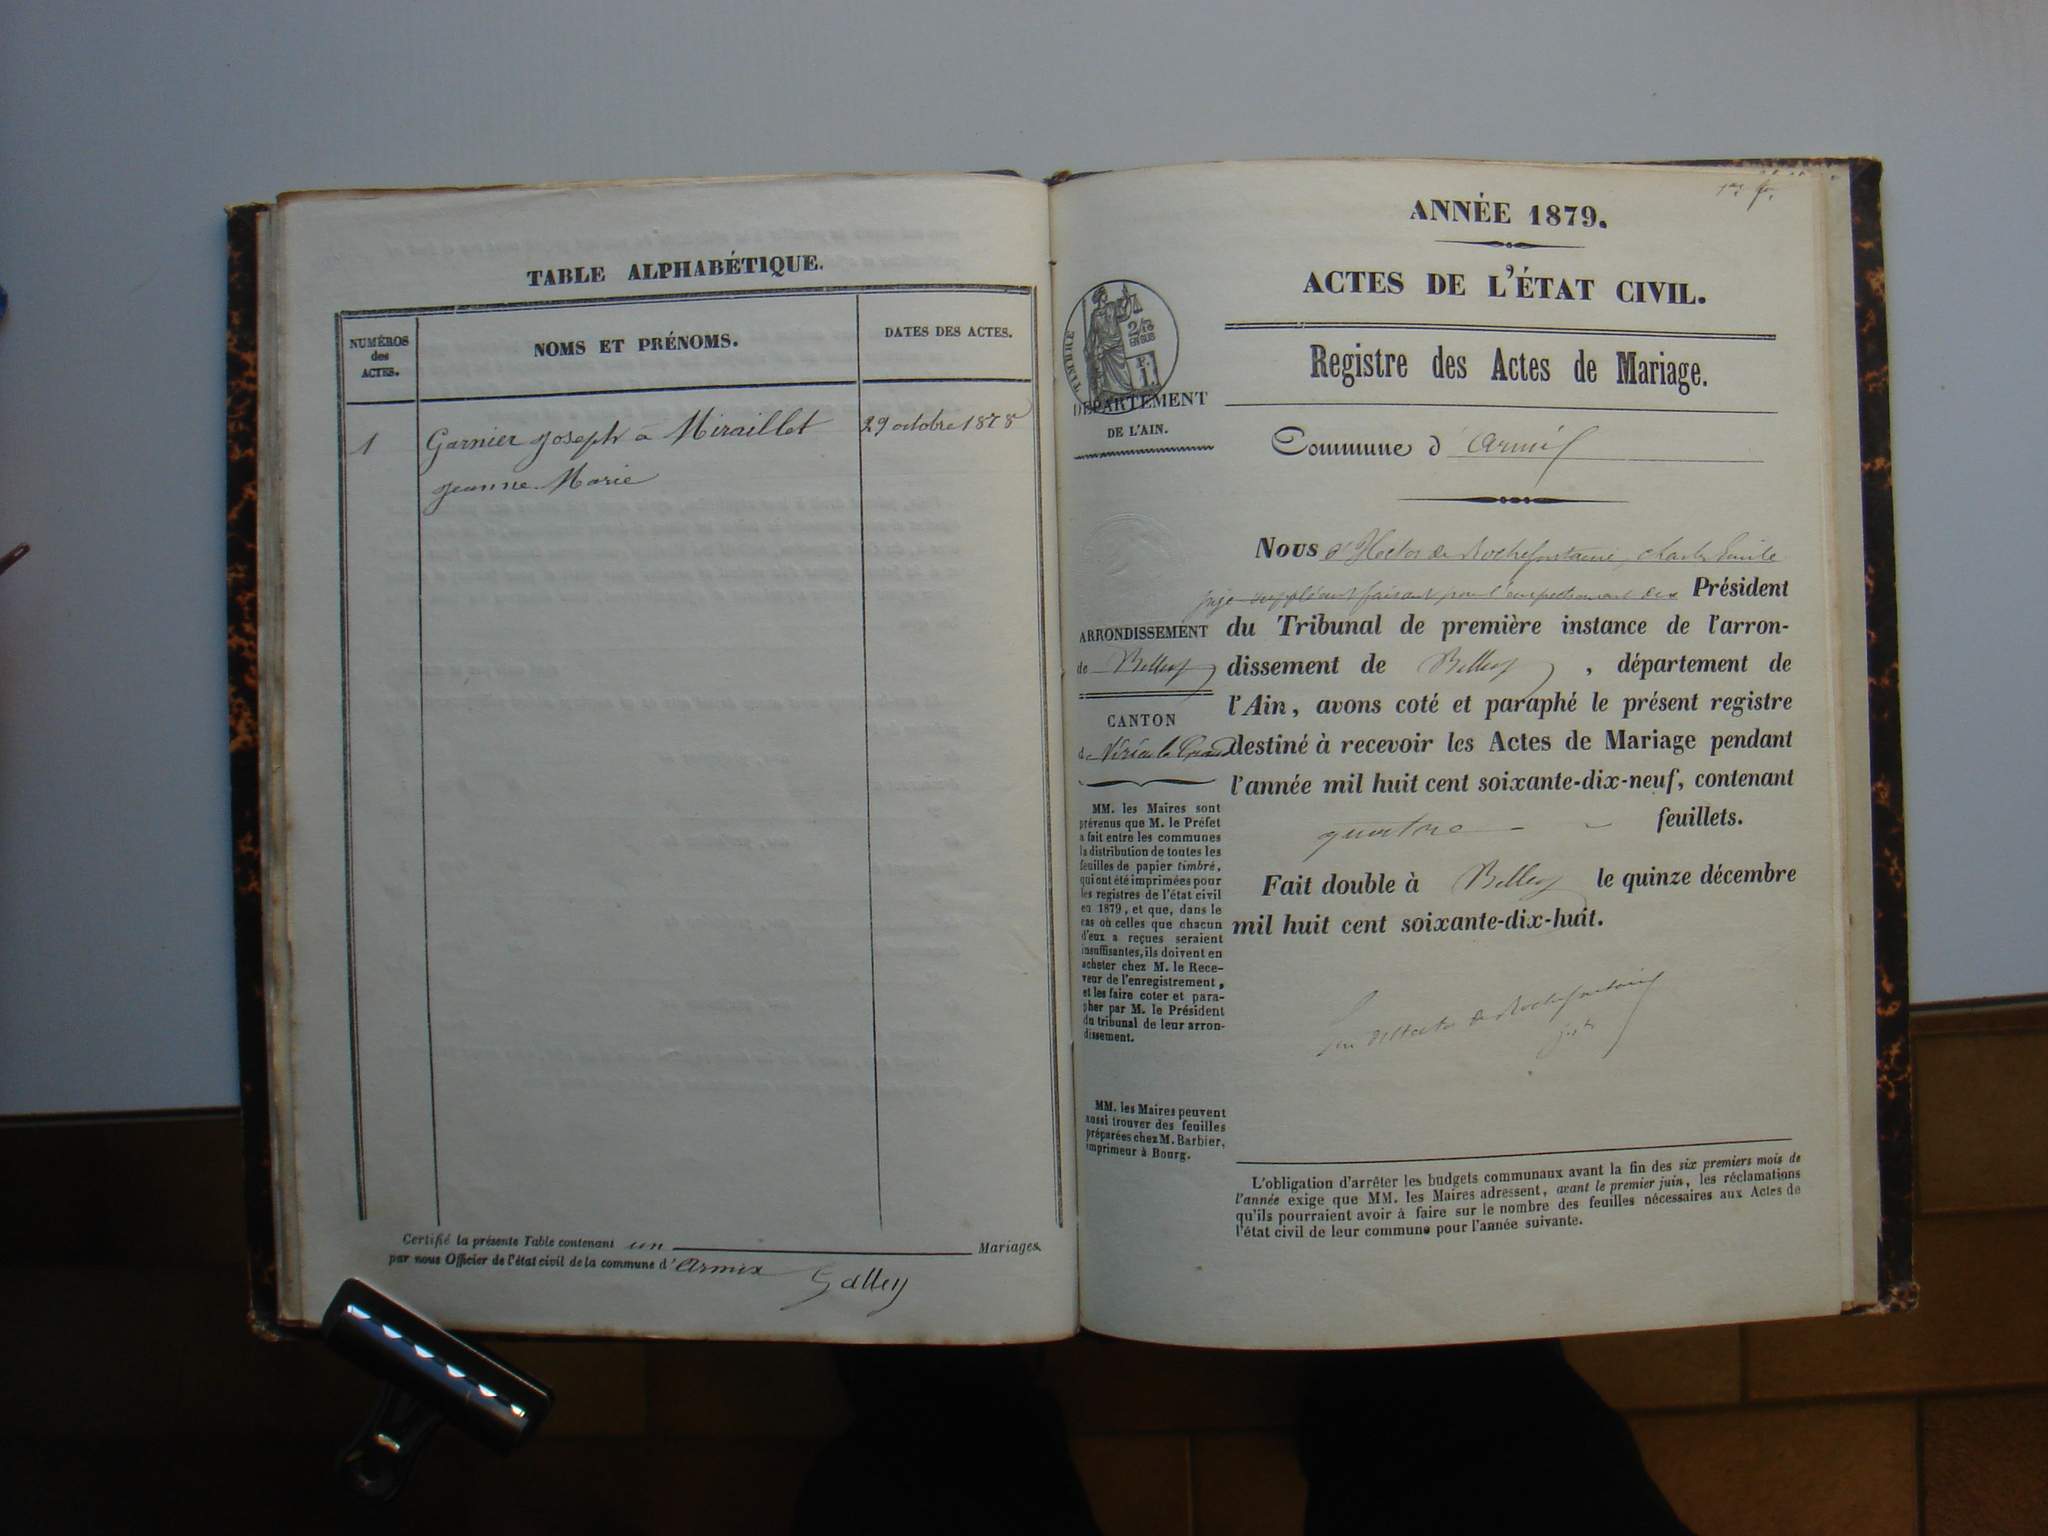 TABLE ALPHABÉTIQUE.
NUMÉROS
des
ACTES.
NOMS ET PRÉNOMS.
DATES DES ACTES.
1
Garnier Joseph a Miraillet
29 octobre 1878
Jeanne Marie
Certifié la présente Table contenant un Mariages
par nous Officier de l'état civil de la commune d'Armix
Galley
1er f.
ANNÉE 1879.
ACTES DE L'ÉTAT CIVIL.
Registre des Actes de Mariage.
TIMBRE
2/10
EN SUS
DÉPARTEMENT
DE L'AIN.
Commune d' Armix
ARRONDISSEMENT
de Belley
CANTON
de Virieu le Grand
MM. les Maires sont
prévenus que M. le Préfet
a fait entre les communes
la distribution de toutes les
feuilles de papier timbré,
qui ont été imprimées pour
les registres de l'état civil
en 1879, et que, dans le
cas où celles que chacun
d'eux a reçues seraient
insuffisantes, ils doivent en
acheter chez M. le Rece-
veur de l'enregistrement,
et les faire coter et para-
pher par M. le Président
du tribunal de leur arron-
dissement.
MM. les Maires peuvent
aussi trouver des feuilles
préparées chez M. Barbier,
imprimeur à Bourg.
Nous d'Hector de Rochefontaine, Charles Emile
juge suppléant faisant pour l'empêchement des Président
du Tribunal de première instance de l'arron-
dissement de Belley, département de
l'Ain, avons coté et paraphé le présent registre
destiné à recevoir les Actes de Mariage pendant
l'année mil huit cent soixante-dix-neuf, contenant
quatre feuillets.
Fait double à Belley le quinze décembre
mil huit cent soixante-dix-huit.
d'Hector de Rochefontaine
L'obligation d'arrêter les budgets communaux avant la fin des six premiers mois de
l'année exige que MM. les Maires adressent, avant le premier juin, les réclamations
qu'ils pourraient avoir à faire sur le nombre des feuilles nécessaires aux Actes de
l'état civil de leur commune pour l'année suivante.